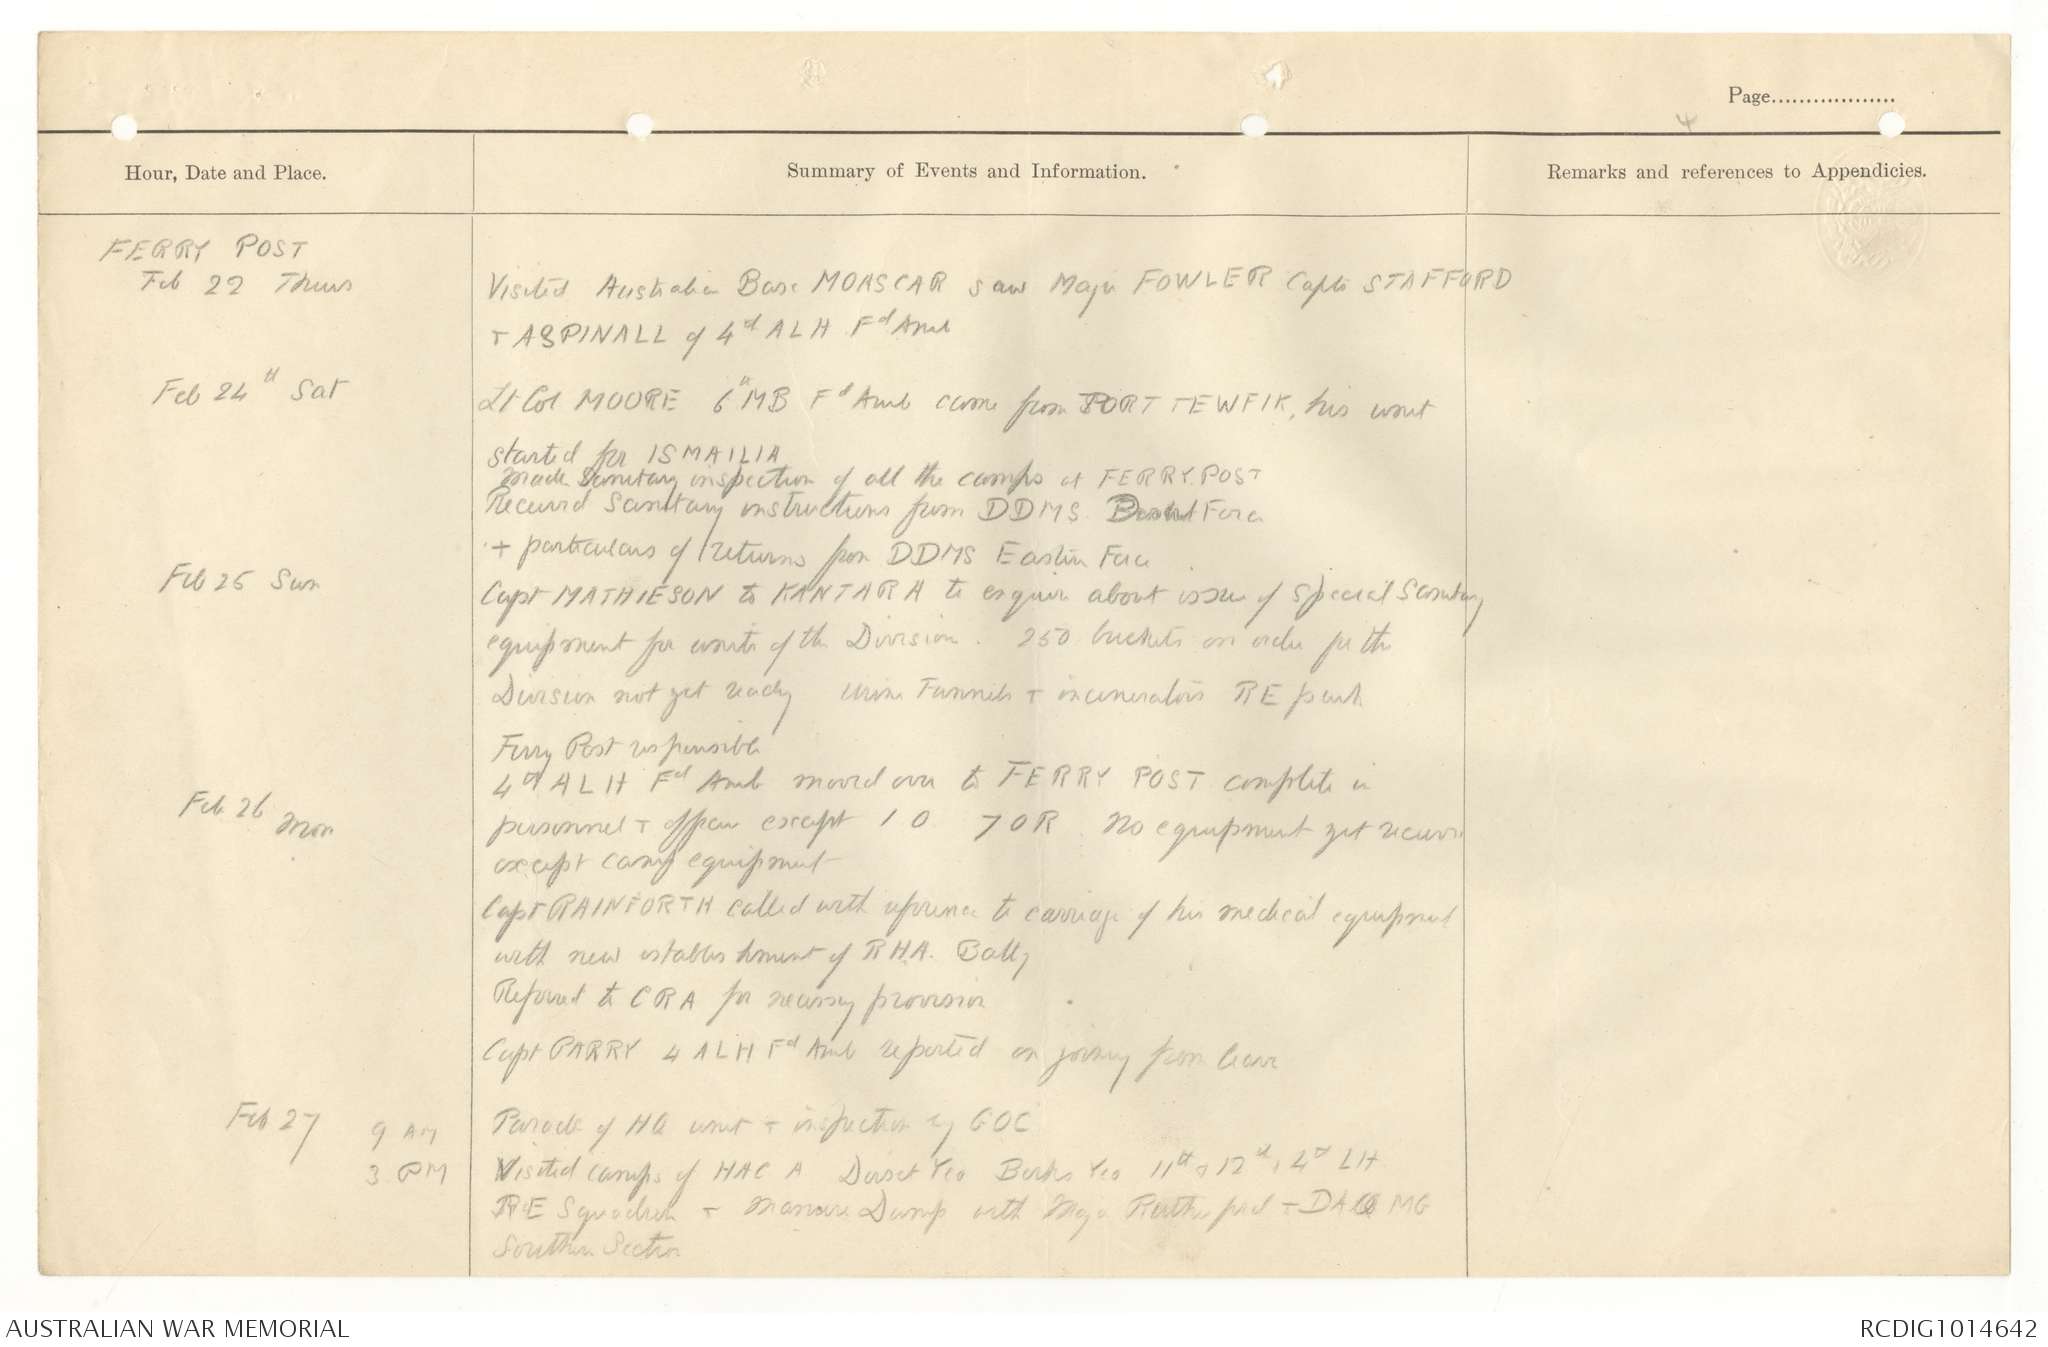 Page..................
4
Hour, Date and Place.
Summary of Events and Information.
Remarks and references to Appendicies.
FERRY POST
Feb 22 Thurs
Visited Australian Base MOASCAR saw Major FOWLER Capts STAFFORD
+ ASPINALL of 4th ALH Fd Amb
Feb 24th Sat
Lt Col MOORE 6th MB Fd Amb came from PORT TEWFIK, his unit
started for ISMAILIA
Made Sanitary inspection of all the camps at FERRY POST
Received Sanitary instructions from DDMS Force
+ particulars of returns from DDMS Eastern Force
Feb 25 Sun
Capt MATHIESON to KANTARA to enquire about issue of Special Sanitary
equipment for units of the Division. 250 buckets on order for the
Division not yet ready urine Funnels + incinerators RE park
Ferry Post responsible
Feb 26 Mon
4th ALH Fd Amb moved over to FERRY POST complete in
personnel + officers except 1 O 7 OR. No equipment yet received
except camp equipment
Capt RAINFORTH called with reference to carriage of his medical equipment
with new establishment of RHA. Batty
Referred to CRA for necessary provision
Capt PARRY 4 ALH Fd Amb reported on joining from leave
Feb 27 9 AM
Parade of HQ unit + inspection by GOC
3 PM
Visited camps of HAC A Dorset Yeo Berks Yeo 11th + 12th, 4th LH
RE Squadron + Manure Dump with Major Rutherford + DAQMG
Southern Section
AUSTRALIAN WAR MEMORIAL
RCDIG1014642